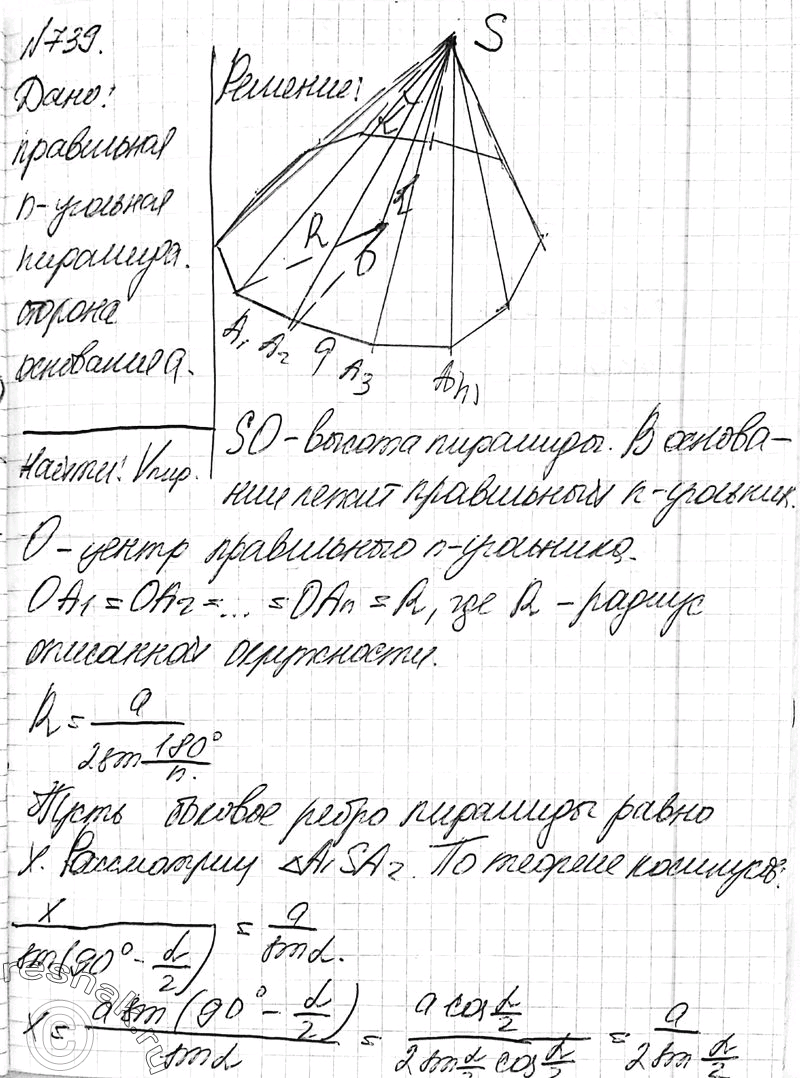 №739.
Дано:
правильная
n-угольная
пирамида.
сторона
основания a.
Найти: Vпир.
Решение:
S
α
R
O
A₁ A₂ a A₃ Aₙ
SO – высота пирамиды. В основа-
нии лежит правильный n-угольник.
O – центр правильного n-угольника.
OA₁ = OA₂ = ... = OAₙ = R, где R – радиус
описанной окружности.
R = a / (2 sin 180°/n).
Пусть боковое ребро пирамиды равно
x. Рассмотрим △A₁SA₂. По теореме косинусов:
x / sin(90° - α/2) = a / sin α.
x = a sin(90° - α/2) / sin α = a cos α/2 / (2 sin α/2 cos α/2) = a / (2 sin α/2)
reshak.ru